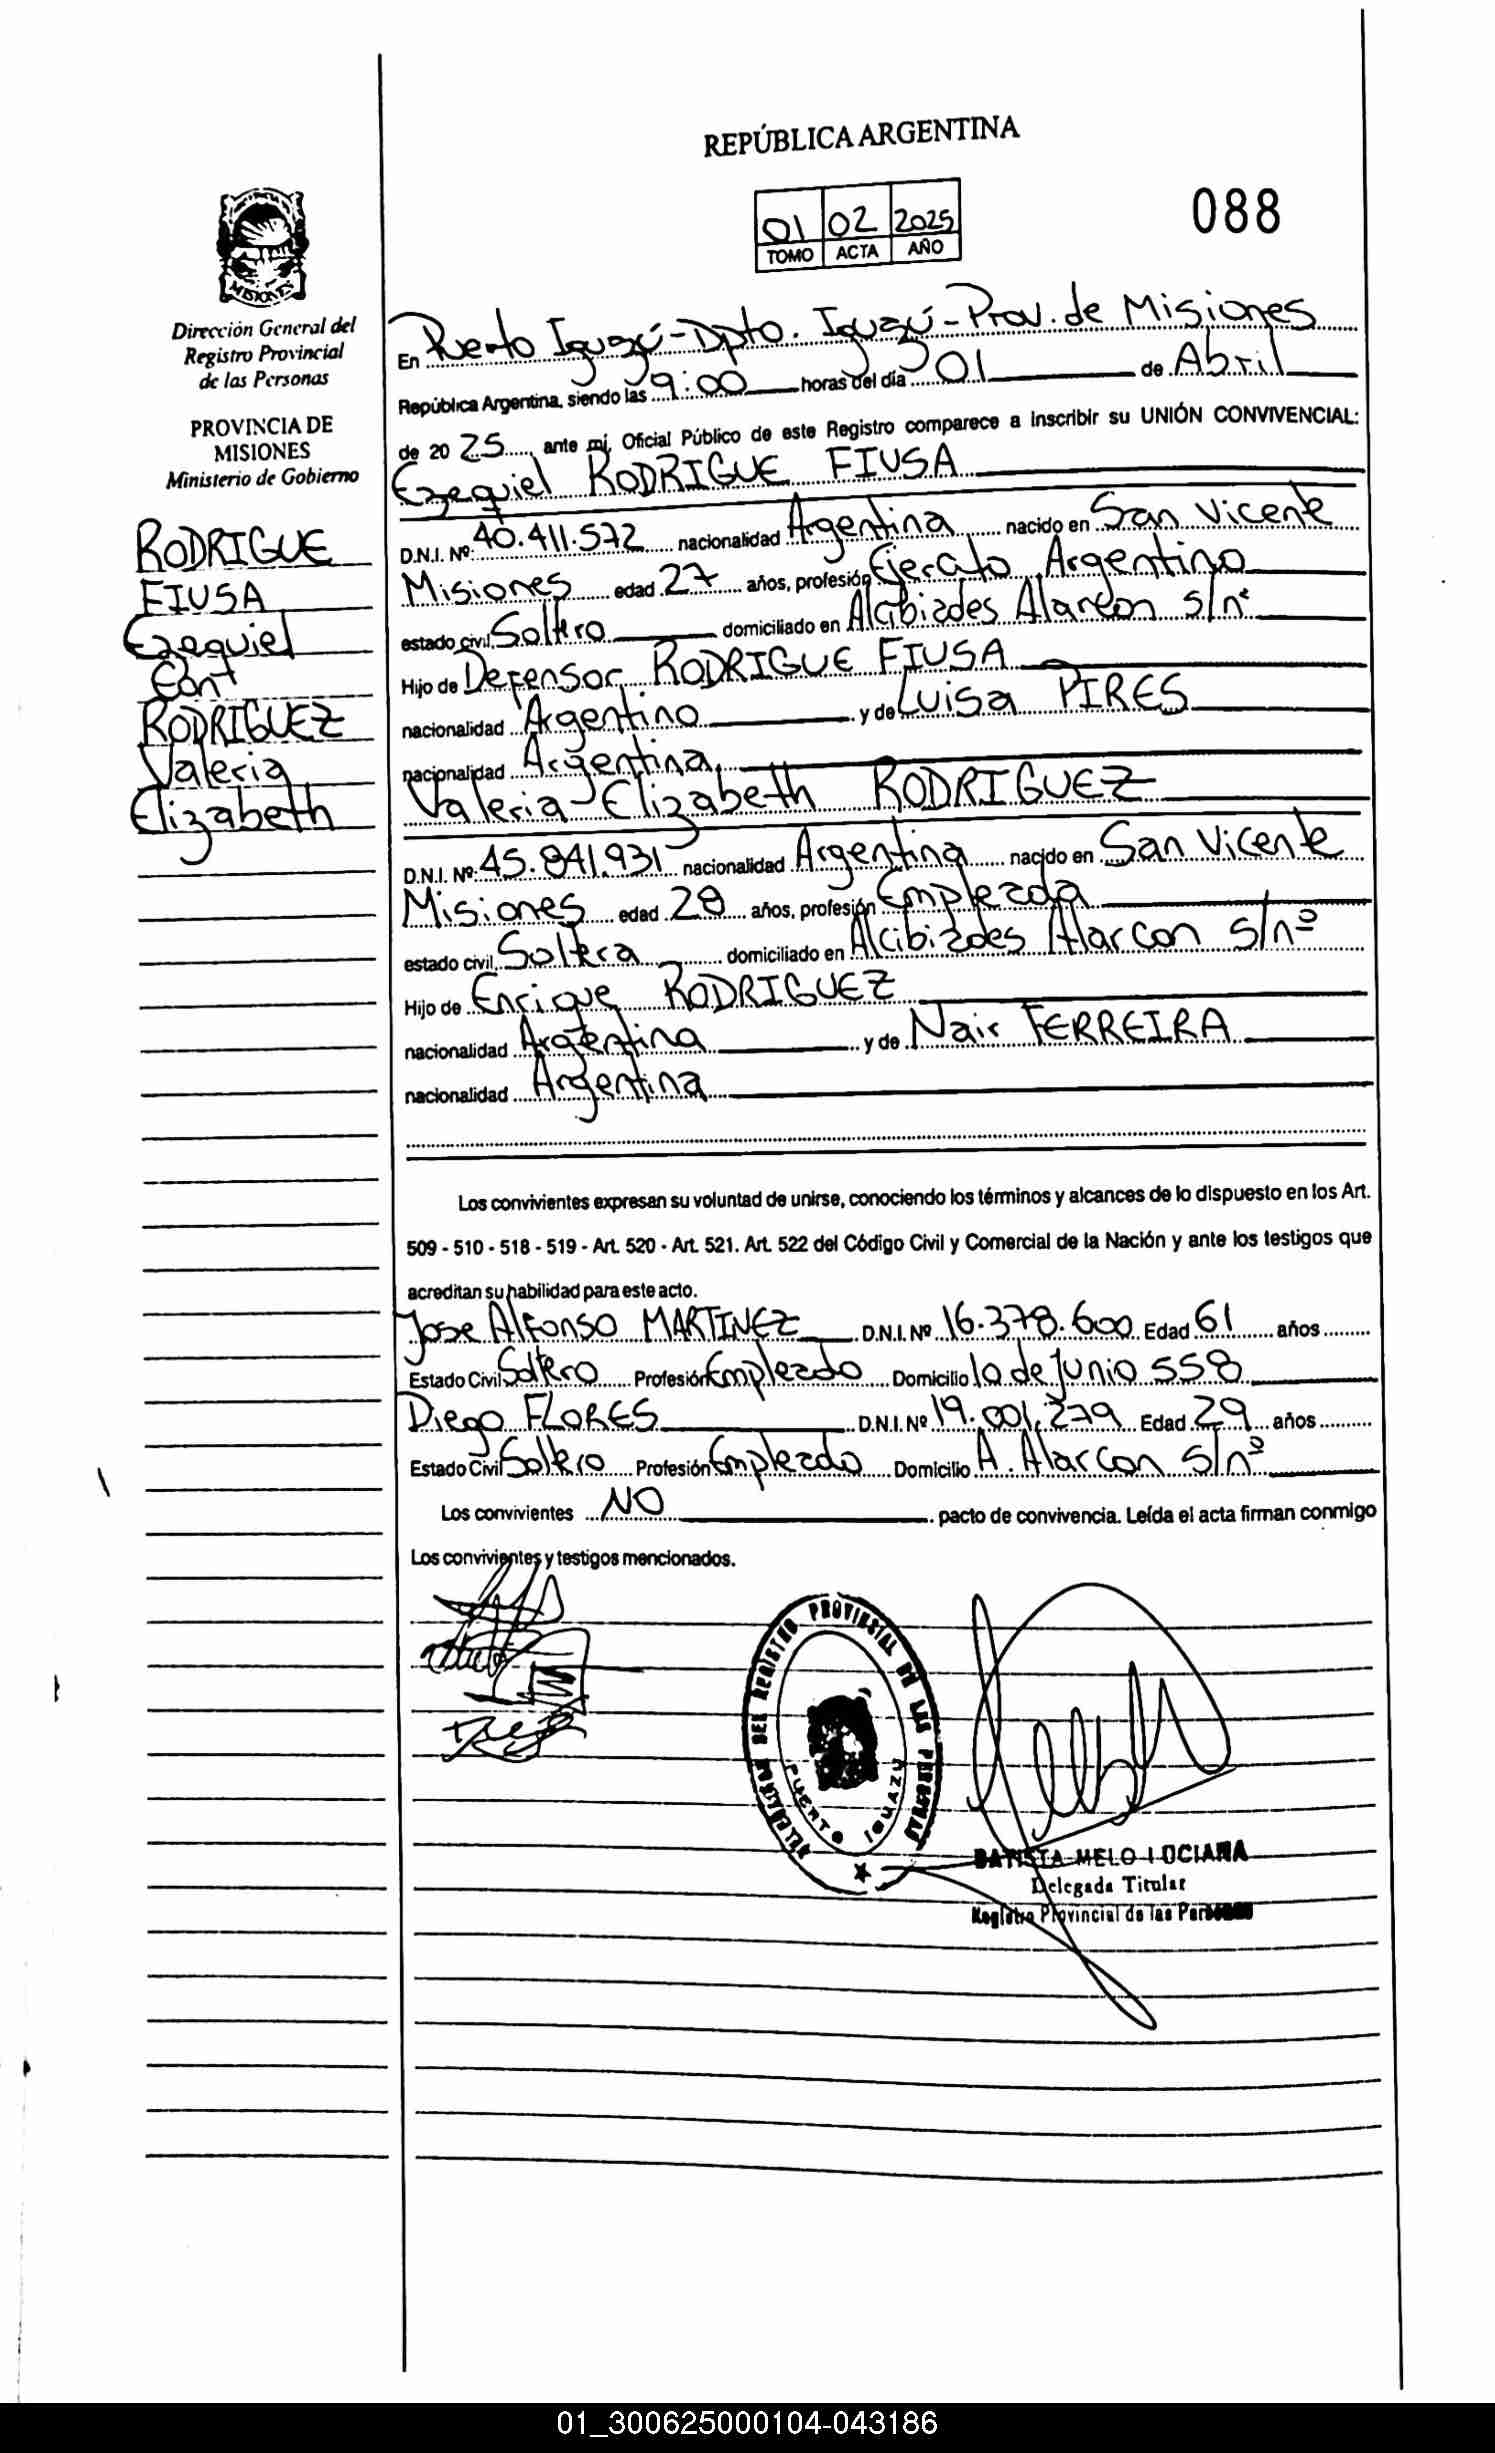 REPÚBLICA ARGENTINA
01 02 2025
TOMO ACTA AÑO
088
MISIONES
Dirección General del
Registro Provincial
de las Personas
PROVINCIA DE
MISIONES
Ministerio de Gobierno
RODRIGUE
FIUSA
Ezequiel
Con
RODRIGUEZ
Valeria
Elizabeth
En Puerto Iguazú - Dpto. Iguazú - Prov. de Misiones
República Argentina, siendo las 9:00 horas del día 01 de Abril
de 20 25 ante mi, Oficial Público de este Registro comparece a inscribir su UNIÓN CONVIVENCIAL:
Ezequiel RODRIGUE FIUSA
D.N.I. Nº: 40.411.572 nacionalidad Argentina nacido en San Vicente
Misiones edad 27 años, profesión Ejercito Argentino
estado civil Soltero domiciliado en Alcibiades Alarcon s/nº
Hijo de Defensor RODRIGUE FIUSA
nacionalidad Argentino y de Luisa PIRES
nacionalidad Argentina
Valeria Elizabeth RODRIGUEZ
D.N.I. Nº: 45.841.931 nacionalidad Argentina nacido en San Vicente
Misiones edad 28 años, profesión Empleada
estado civil Soltera domiciliado en Alcibiades Alarcon s/nº
Hijo de Enrique RODRIGUEZ
nacionalidad Argentina y de Nair FERREIRA
nacionalidad Argentina
Los convivientes expresan su voluntad de unirse, conociendo los términos y alcances de lo dispuesto en los Art.
509 - 510 - 518 - 519 - Art. 520 - Art. 521. Art. 522 del Código Civil y Comercial de la Nación y ante los testigos que
acreditan su habilidad para este acto.
Jose Alfonso MARTINEZ D.N.I. Nº 16.378.600 Edad 61 años
Estado Civil Soltero Profesión Empleado Domicilio 10 de Junio 558
Diego FLORES D.N.I. Nº 19.001.279 Edad 29 años
Estado Civil Soltero Profesión Empleado Domicilio A. Alarcon s/nº
Los convivientes NO pacto de convivencia. Leída el acta firman conmigo
Los convivientes y testigos mencionados.
DEL REGISTRO PROVINCIAL DE LAS PERSONAS
PUERTO IGUAZU
BATISTA MELO LUCIANA
Delegada Titular
Registro Provincial de las Personas
01_300625000104-043186